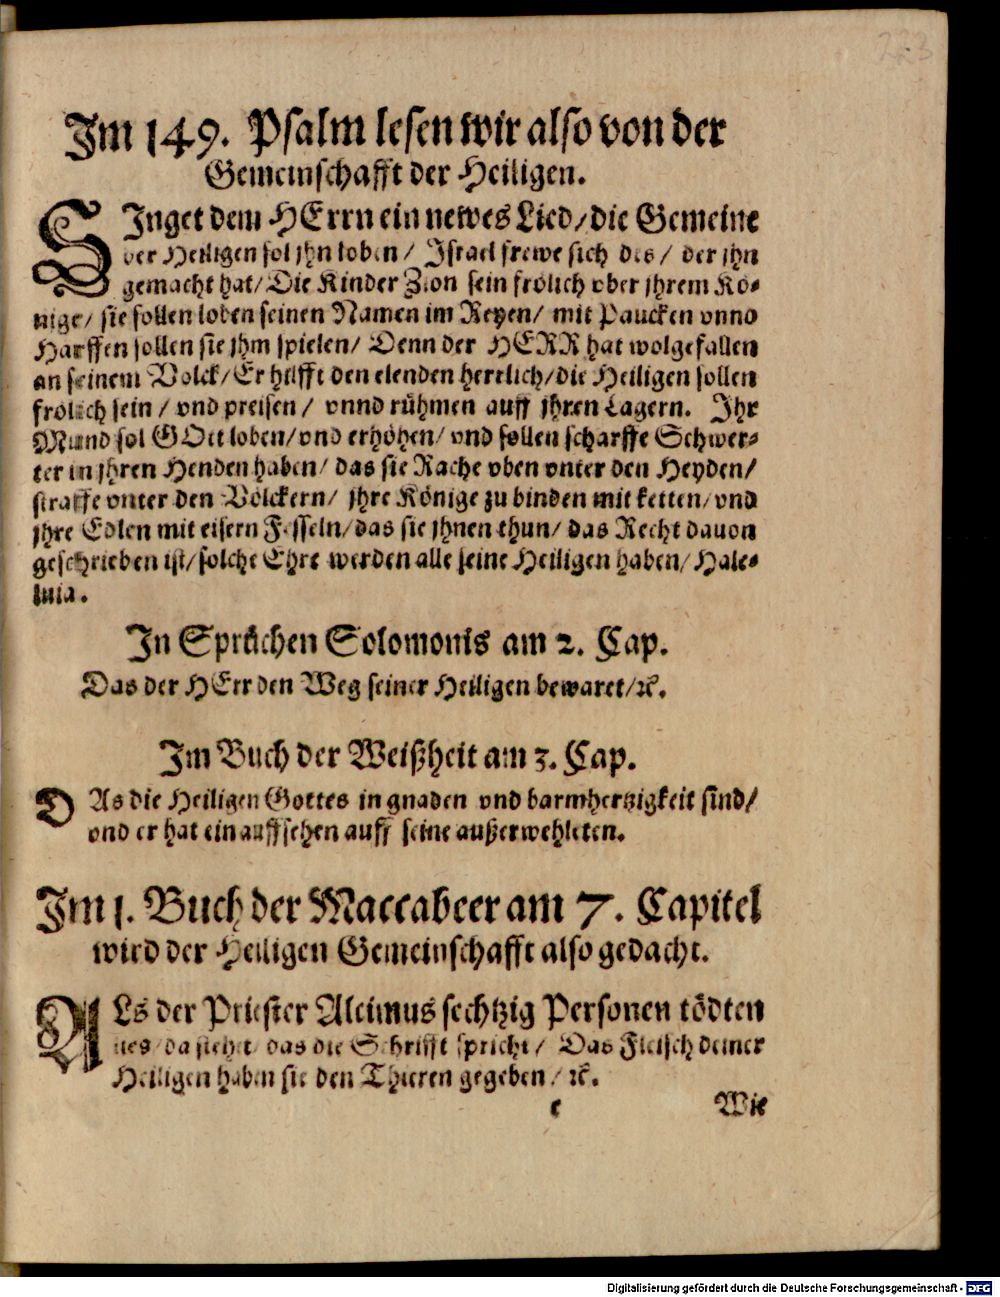 223
Im 149. Psalm lesen wir also von der
Gemeinschafft der Heiligen.
SInget dem HErrn ein newes Lied/ die Gemeine
der Heiligen sol jhn loben/ Israel frewe sich des/ der jhn
gemacht hat/ Die Kinder Zion sein frölich vber jhrem Kö-
nige/ sie sollen loben seinen Namen im Reyen/ mit Paucken vnnd
Harffen sollen sie jhm spielen/ Denn der HERR hat wolgefallen
an seinem Volck/ Er hilfft den elenden herrlich/ die Heiligen sollen
frölich sein/ vnd preisen/ vnnd rühmen auff jhren Lagern. Ihr
Mund sol GOtt loben/ vnd erhöhen/ vnd sollen scharffe Schwer-
ter in jhren Henden haben/ das sie Rache vben vnter den Heyden/
straffe vnter den Völckern/ jhre Könige zu binden mit ketten/ vnd
jhre Edlen mit eisern Fesseln/ das sie jhnen thun/ das Recht dauon
geschrieben ist/ solche Ehre werden alle seine Heiligen haben/ Hale-
luia.
In Sprüchen Solomonis am 2. Cap.
Das der HErr den Weg seiner Heiligen bewaret/ ꝛc.
Im Buch der Weißheit am 3. Cap.
DAs die Heiligen Gottes in gnaden vnd barmhertzigkeit sind/
vnd er hat ein auffsehen auff seine außerwehleten.
Im 1. Buch der Maccabeer am 7. Capitel
wird der Heiligen Gemeinschafft also gedacht.
ALs der Priester Alcimus sechtzig Personen tödten
lies/ da stehet/ das die Schrifft spricht/ Das Fleisch deiner
Heiligen haben sie den Thieren gegeben/ ꝛc.
c Wie
Digitalisierung gefördert durch die Deutsche Forschungsgemeinschaft - DFG